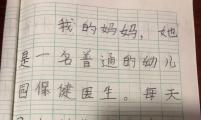 我的妈妈，她
是一名普通的幼儿
园保健医生。每天